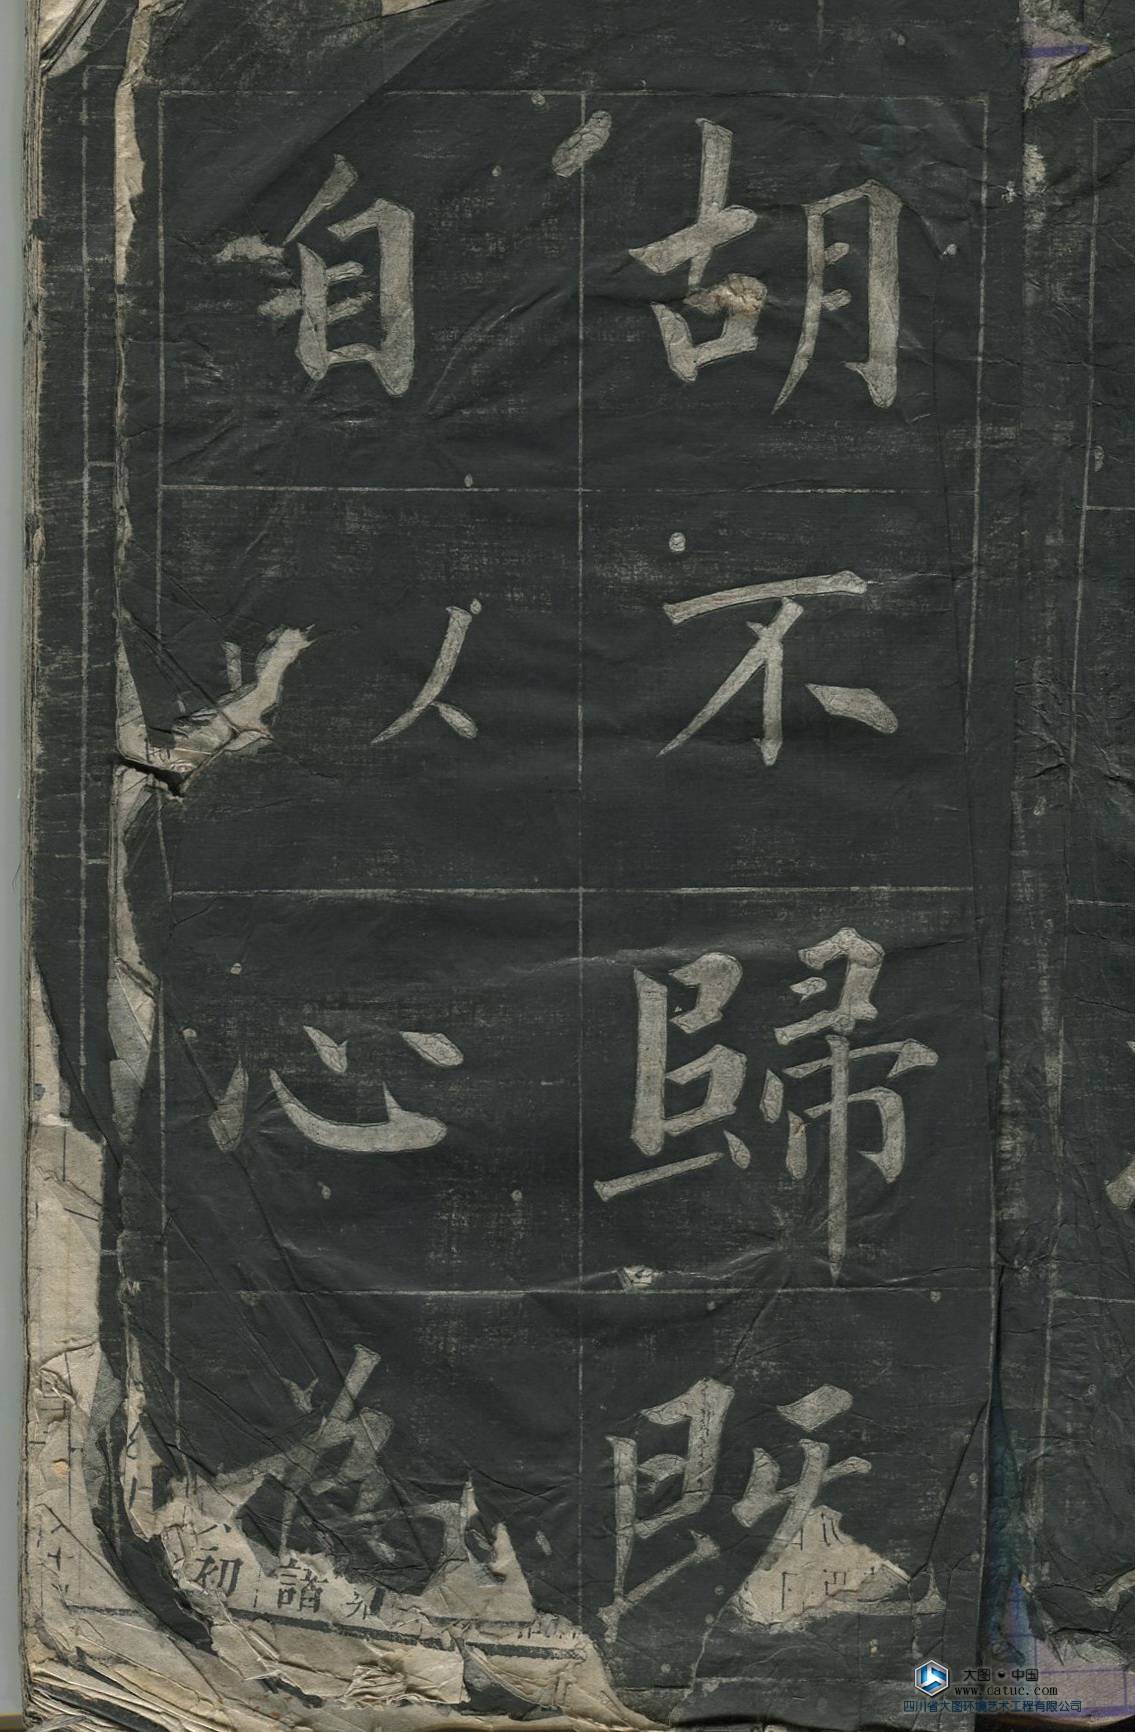 胡不歸既
自以心為
初 諸
大图 中国
www.catuc.com
四川省大图环境艺术工程有限公司